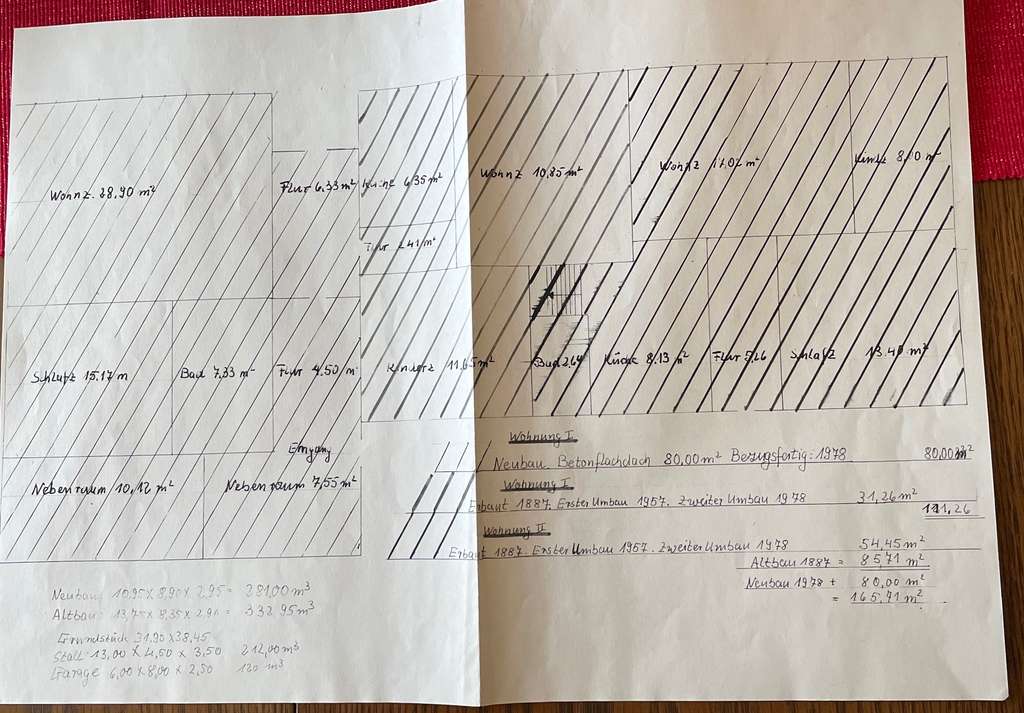 Wohnz. 28,90 m²
Flur 6,33 m²
Küche 6,35 m²
Wohnz 10,85 m²
Wohnz 17,02 m²
8,00 m²
Flur 2,41 m²
Schlafz 15,17 m
Bad 7,33 m²
Flur 4,50 m²
Kinderz 11,65 m²
Bad 2,64
Küche 8,13 m²
Flur 5,26
Schlafz 13,40 m²
Eingang
Nebenraum 10,12 m²
Nebenraum 7,55 m²
Wohnung I
Neubau Betonflachdach 80,00 m² Bezugsfertig: 1978 80,00 m²
Wohnung I
Erbaut 1887. Erster Umbau 1957. Zweiter Umbau 1978 31,26 m²
111,26
Wohnung II
Erbaut 1887. Erster Umbau 1957. Zweiter Umbau 1978 54,45 m²
Altbau 1887 = 85,71 m²
Neubau 1978 + 80,00 m²
= 165,71 m²
Neubau 10,95 x 8,90 x 2,95 = 281,00 m³
Altbau: 13,75 x 8,35 x 2,90 = 332,95 m³
Grundstück 31,90 x 38,45
Stall 13,00 x 4,50 x 3,50 212,00 m³
Garage 6,00 x 8,00 x 2,50 120 m³